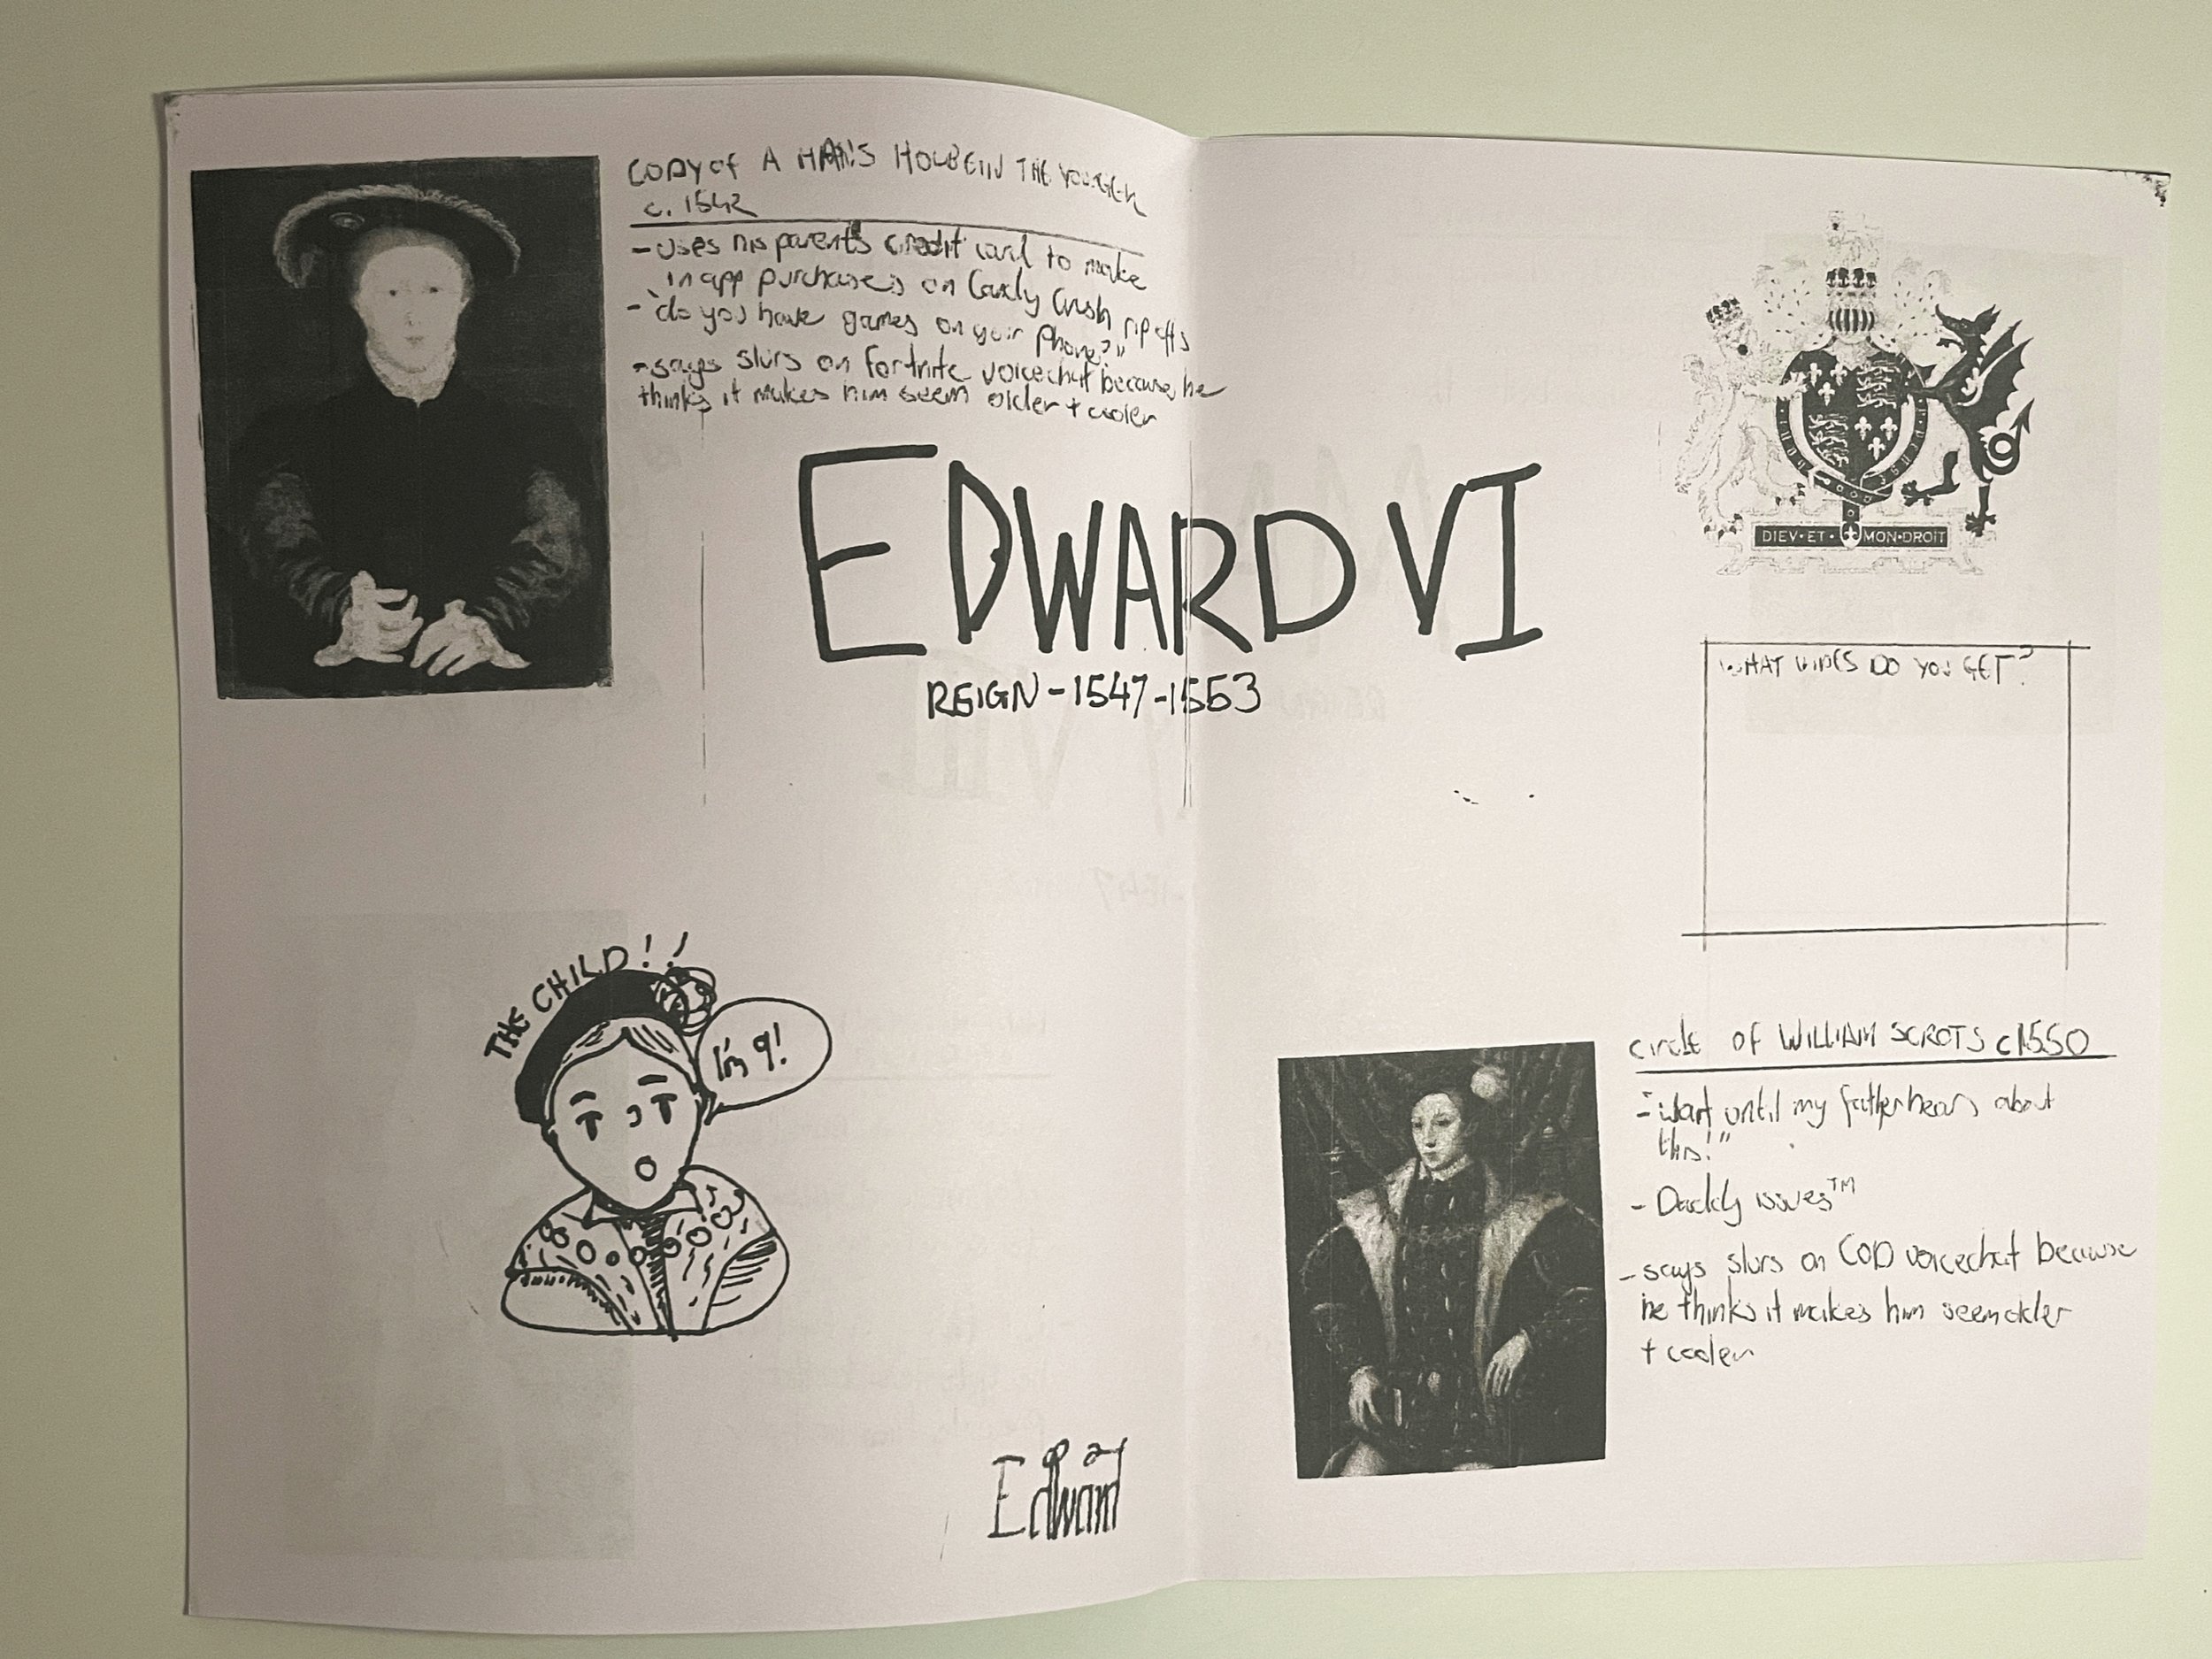 COPY of A HANS HOLBEIN THE YOUNGER
c. 1542
- Uses his parent's credit card to make
in app purchases on Candy Crush rip offs
- "do you have games on your phone?"
- says slurs on Fortnite voicechat because he
thinks it makes him seem older + cooler
EDWARD VI
REIGN - 1547-1553
DIEV·ET· MON·DROIT
WHAT VIBES DO YOU GET?
THE CHILD!!
I'm 9!
circle OF WILLIAM SCROTS c1550
- "wait until my father hears about
this!"
- Daddy issues™
- says slurs on COD voicechat because
he thinks it makes him seem older
+ cooler
Edward